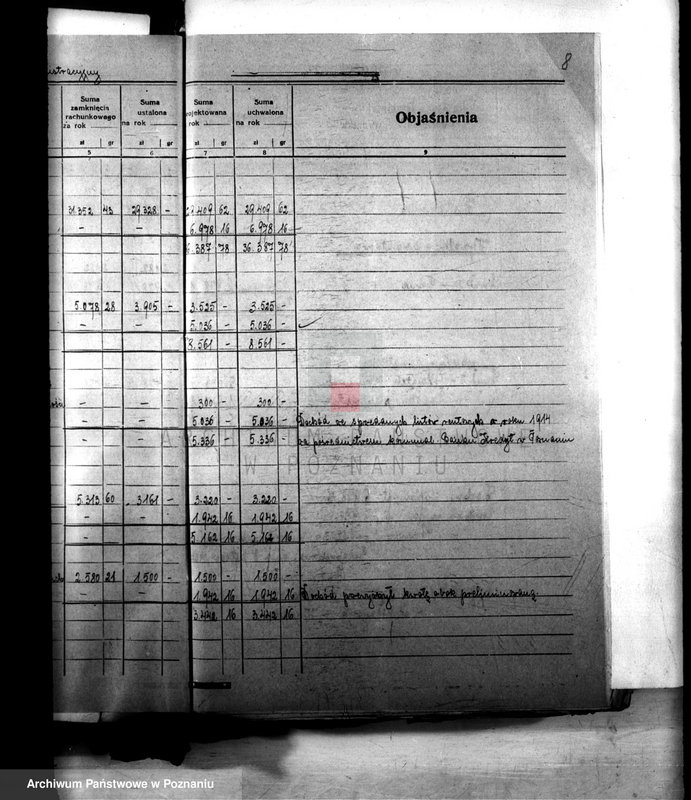 8
Suma zamknięcia rachunkowego za rok
Suma ustalona na rok
Suma rojektowana rok
Suma uchwalona na rok
Objaśnienia
zł gr zł gr zł gr zł gr
5 6 7 8 9
31.352 43 29.328 - 29.409 62 29.409 62
- - 6.978 16 6.978 16 -
6.387 78 36.387 78
5.078 28 3.905 - 3.525 - 3.525 -
- - 5.036 - 5.036 -
8.561 - 8.561 -
- - 300 - 300 -
- 5.036 - 5.036 - Dochód ze sprzedanych listów rentowych w roku 1914
- 5.336 - 5.336 - za pośrednictwem komunal. Banku Kredyt. w Poznaniu
W POZNANIU
5.313 60 3.161 - 3.220 - 3.220 -
- - 1.942 16 1.942 16
- - 5.162 16 5.162 16
2.580 21 1.500 - 1.500 - 1.500 -
- - 1.942 16 1.942 16 Dochód przewyższył kwotę obok preliminowaną.
3.442 16 3.442 16
Archiwum Państwowe w Poznaniu